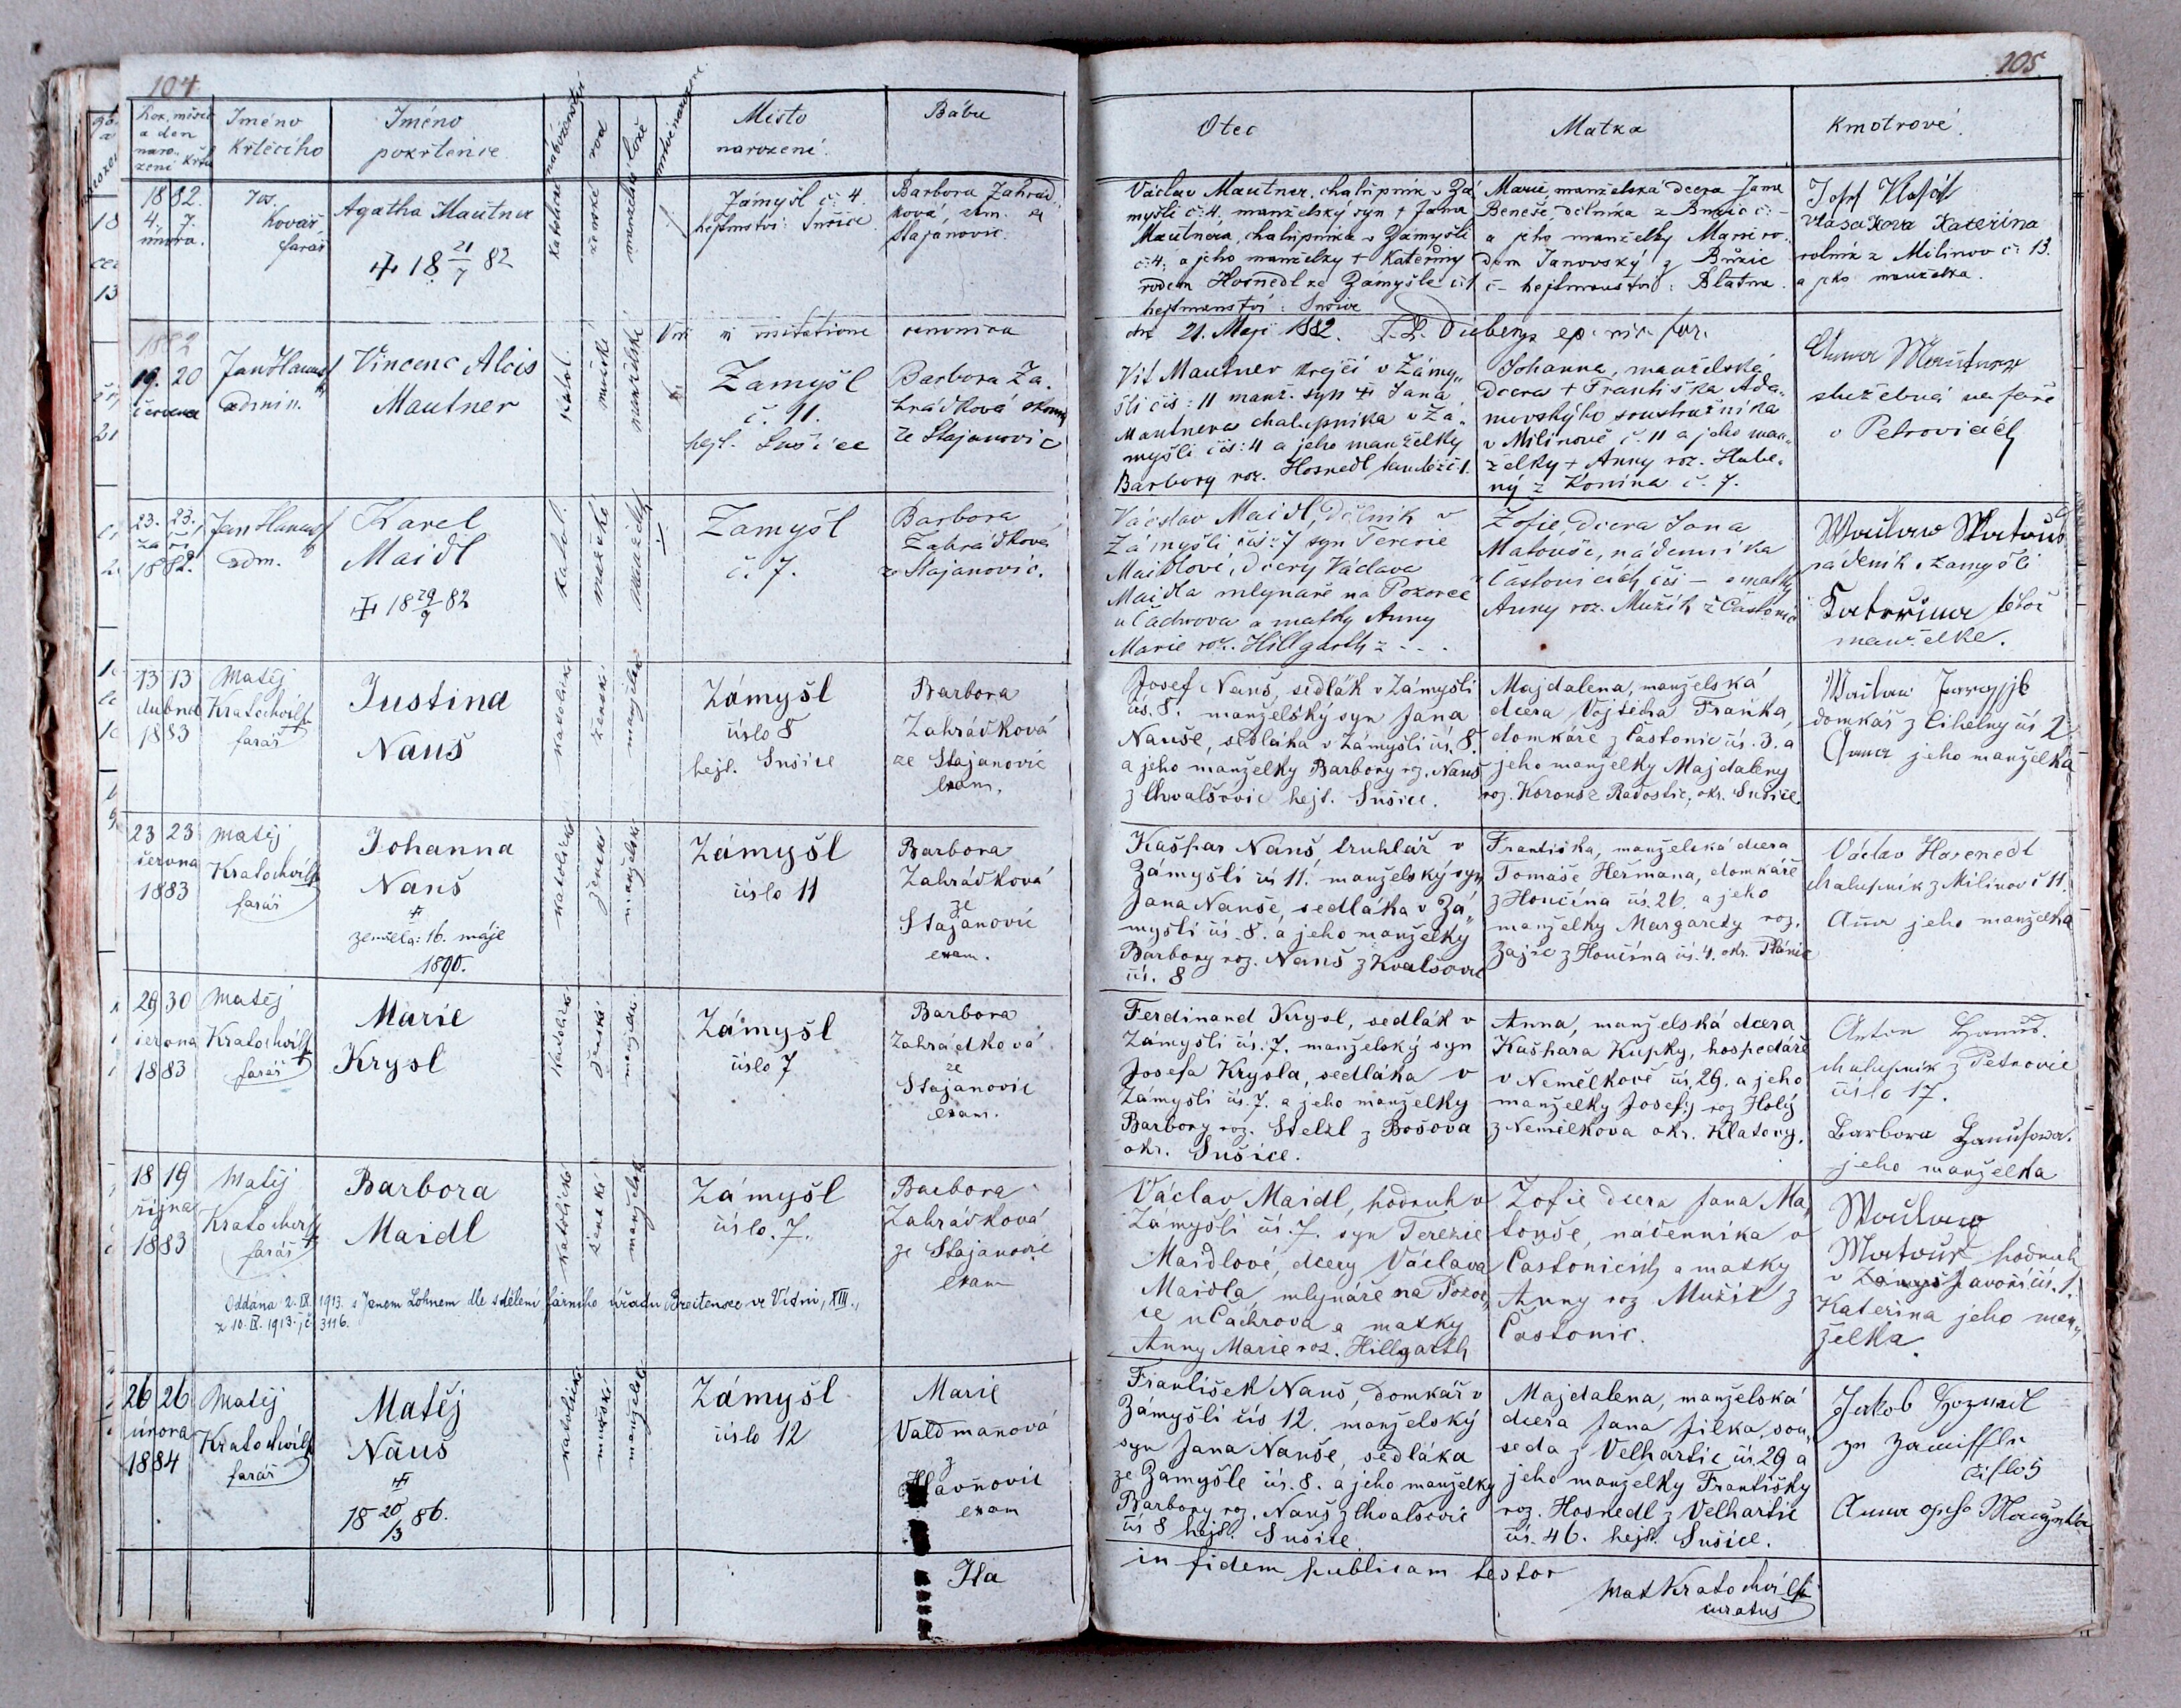 104
Rok, měsíc
a den
naro-
zení křtu
Jméno
Křtícího
Jméno
pokřtěnce
náboženství
rod
lože
Místo
narození.
Bába
1882.
4. 7.
února.
Jos.
Kovář
farář
Agatha Mautner
18 21/7 82
katolické
ženské
manželské
Zámyšl č: 4.
hejtmství: Sušice
Barbora Zahrád-
ková, exm. ze
Stajanovic.
1882
19. 20
července
Jan Hanusch
admin.
Vincenc Alois
Mautner
Katol.
mužské
manželské
Vidi in visitatione canonica
Zamyšl
č. 11.
hejt. Sušice
Barbora Za-
hrádková zkouš
ze Stajanovic
23. 23.
září
1882.
Jan Hanusch
adm.
Karel
Maidl
18 29/9 82
Katol.
mužské
Zamyšl
č. 7.
Barbora
Zahrádková
ze Stajanovic.
13 13
dubna
1883
Matěj
Kratochvíl
farář
Justina
Nauš
katolické
ženské
manželské
Zámyšl
číslo 8
hejt. Sušice
Barbora
Zahrádková
ze Stajanovic
exam.
23 23
června
1883
Matěj
Kratochvíl
farář
Johanna
Nauš
zemřela: 16. máje
1890.
katolické
ženské
manželské
Zámyšl
číslo 11
Barbora
Zahrádková
ze
Stajanovic
exam.
29 30
června
1883
Matěj
Kratochvíl
farář
Marie
Krysl
katolické
ženské
manželské
Zámyšl
číslo 7
Barbora
Zahradková
ze
Stajanovic
exam.
18 19
října
1883
Matěj
Kratochvíl
farář
Barbora
Maidl
katolické
ženské
manželské
Zámyšl
číslo. 7.
Barbora
Zahrádková
ze Stajanovic
exam
Oddána 2. IX. 1913. s Janem Lohnem dle sdělení farního úřadu Breitensee ve Vídni, XIII.,
z 10. IX. 1913. č. 3116.
26 26
února
1884
Matěj
Kratochvíl
farář
Matěj
Nauš
18 20/3 86.
katolické
mužské
manželské
Zámyšl
číslo 12
Marie
Valdmanová
z
Havňovic
exam
Ita
105
Otec
Matka
Kmotrové.
Václav Mautner, chalupník v Zá-
myšli č: 4. manželský syn + Jana
Mautnera, chalupníka v Zámyšli
č: 4, a jeho manželky + Kateřiny
rodem Hosnedl ze Zámyšle č: 1
hejtmanství: Sušice
Marie manželská dcera Jana
Beneše, dělníka z Buzic č: -
a jeho manželky Marie ro-
dem Janovský z Buzic
č - hejtmanství: Blatna.
Josef Vlasák
Vlasakova Kateřina
rolník z Milinov č: 13.
a jeho manželka.
die 21. Maji 1882.
Vít Mautner krejčí v Zámy-
šli čís: 11 manž. syn Jana
Mautnera chalupníka v Za-
myšli čís: 4 a jeho manželky
Barbory roz. Hosnedl tamtéž č. 1.
Johanna, manželská
dcera + Františka Ada-
movského soustružníka
v Milinově č. 11 a jeho man-
želky + Anny roz. Hube-
ný z Konína č. 7.
Anna Mautner
služebná na faře
v Petrovicích
Václav Maidl, dělník v
Zámyšli čís: 7 syn Terezie
Maidlové, dcery Václava
Maidla mlynáře na Pozorce
u Čachrova a matky Anny
Marie roz. Hillgarth z - - .
Zofie, dcera Jana
Matouše, nádenníka
v Částonicích čís - a matky
Anny roz. Mužík z Částonic
Watlaw Matauš
nádeník v Zamyšli
manželka.
Josef Nauš, sedlák v Zámyšli
čís. 8. manželský syn Jana
Nauše, sedláka v Zámyšli čís. 8.
a jeho manželky Barbory roz. Nauš
z Chvalšovic hejt. Sušice.
Majdalena, manželská
dcera Vojtěcha Fraňka,
domkáře z Častonic čís. 3. a
jeho manželky Majdaleny
roz. Korouš z Radostic, okr. Sušice.
domkář z Cihelny čís 2
Anna jeho manželka
Kašpar Nauš truhlář v
Zámyšli čís 11. manželský syn
Jana Nauše, sedláka v Zá-
myšli čís. 8. a jeho manželky
Barbory roz. Nauš z Kvalšovic
čís. 8
Františka, manželská dcera
Tomáše Heřmana, domkáře
z Hončína čís. 26. a jeho
manželky Margarety roz.
Zajíc z Hončína čís. 4. okr. Plánic
Václav Hosenedl
chalupník z Milinov č 11.
Anna jeho manželka
Ferdinand Krysl, sedlák v
Zámyšli čís. 7. manželský syn
Josefa Krysla, sedláka v
Zámyšli čís. 7. a jeho manželky
Barbory roz. Stelzl z Bošova
okr. Sušice.
Anna, manželská dcera
Kašpara Kupky, hospodáře
v Nemělkově čís. 29. a jeho
manželky Josefy roz Holý
z Nemělkova okr. Klatovy.
Anton Hanuš.
chalupník z Petrovic
číslo 17.
Barbora Hanusowa.
jeho manželka
Václav Maidl, podruh v
Zámyšli čís. 7. syn Terezie
Maidlové, dcery Václava
Maidla, mlynáře na Pozor-
ce u Čachrova a matky
Anny Marie roz. Hillgarth
Zofie dcera Jana Ma-
touše, nádenníka v
Častonicích a matky
Anny roz Mužík z
Častonic.
Watlaw
Matauš podruh
v Javoří čís. 1.
Kateřina jeho man-
želka.
František Nauš, domkář v
Zámyšli čís 12. manželský
syn Jana Nauše, sedláka
ze Zamyšle čís. 8. a jeho manželky
Barbory roz. Nauš z Chvalšovic
čís 8 hejt. Sušice.
Majdalena, manželská
dcera Jana Jílka, sou-
seda z Velhartic čís. 29 a
jeho manželky Františky
roz. Hosnedl z Velhartic
čís. 46. hejt. Sušice.
Jakob
číslo 5
Anna
in fidem publicam testor
Mat Kratochvíl
curatus